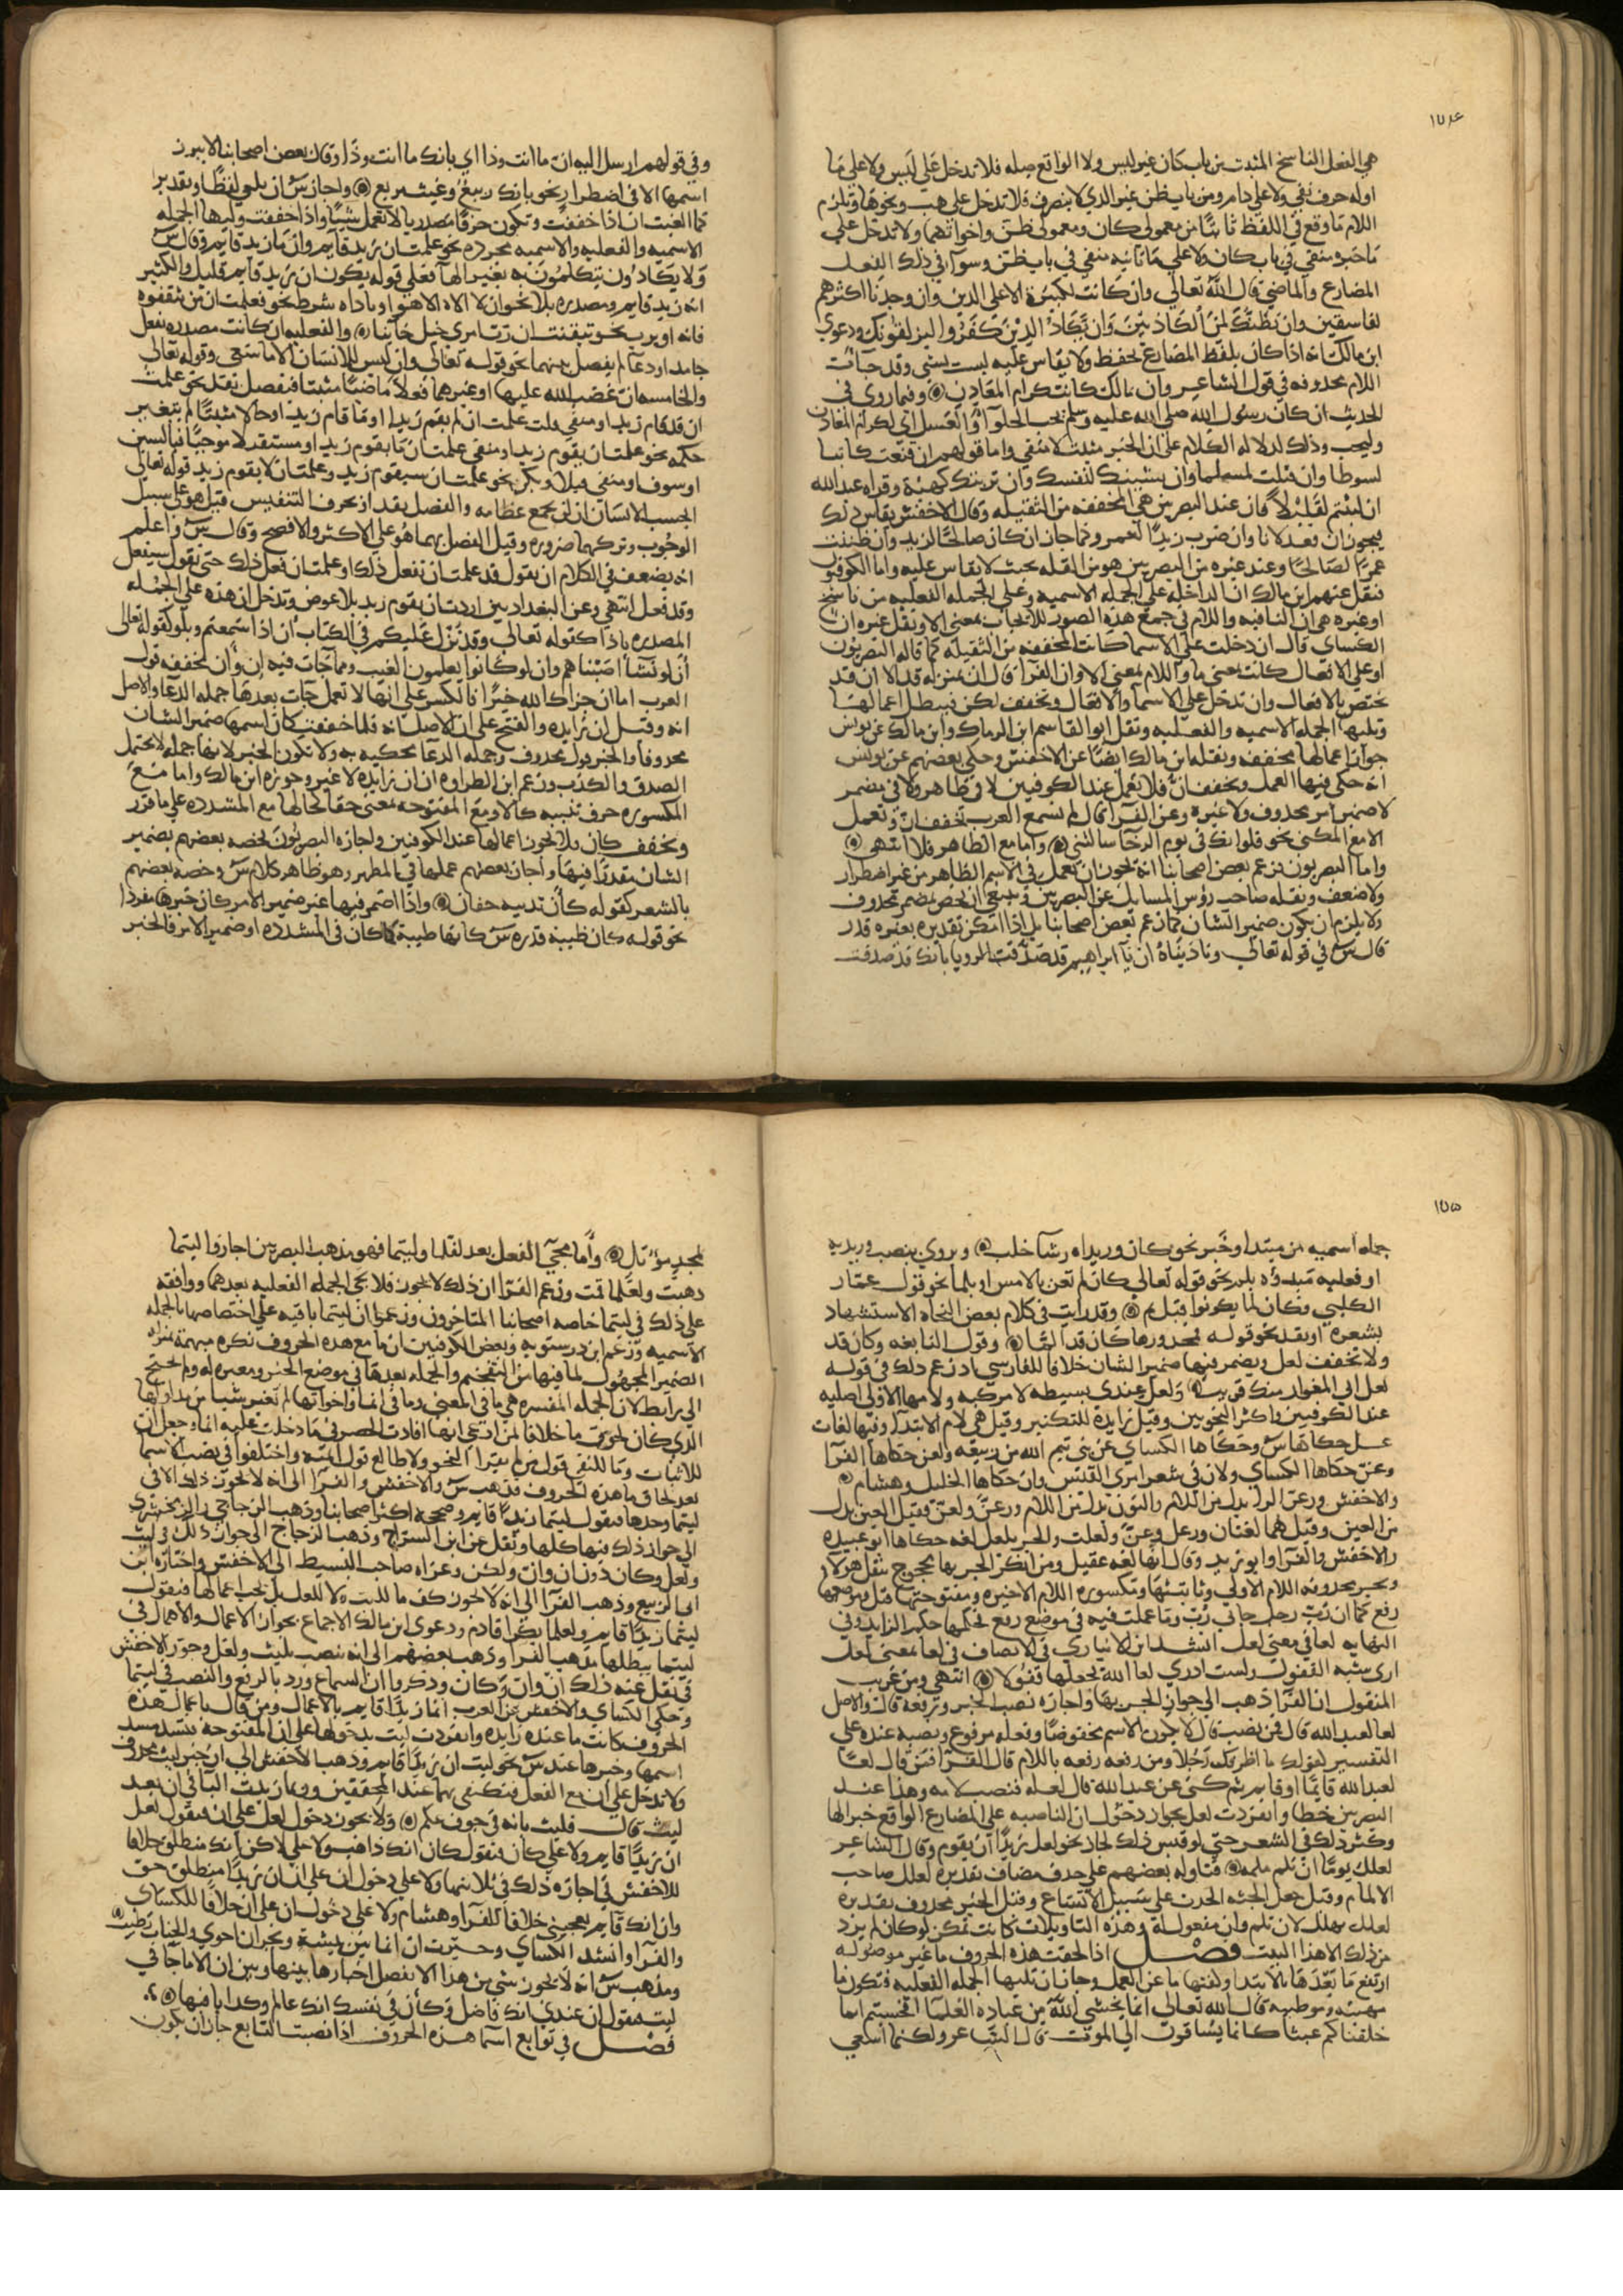 ١٧٤
هي الفعل الناسخ المثبت من باب كان غير ليس ولا الواقع صله فلا تدخل على ليس ولا على ما
اوله حرف نفي ولا على دام ومن باب ظن غير الذي لا يتصرف فلا تدخل على هب ونحوها وتلزم
اللام ما وقع في اللفظ ثانيا من معمولي كان ومعمولي ظن واخواتهما ولا تدخل على
ما خبره منفي في باب كان ولا على ما ثانيه منفي في باب ظن وسوآ في ذلك الفعل
المضارع والماضي قال الله تعالى وان كانت لكبيرة الا على الذين وان وجدنا اكثرهم
لفاسقين وان نظنك لمن الكاذبين وان يكاد الذين كفروا ليزلقونك ودعوى
ابن مالك انه اذا كان بلفظ المضارع يحفظ ولا يقاس عليه ليست بشي وقد جآت
اللام محذوفه في قول الشاعر وان مالك كانت كرام المعادن وفيما روي في
الحديث ان كان رسول الله صلى الله عليه وسلم يحب الحلوآ والعسل اي لكرام المعادن
وليحب وذلك لدلاله الكلام على ان الخبر مثبت لا منفي واما قولهم ان قنعت كاتبا
لسوطا وان قتلت لمسلما وان يشينك لنفسك وان تزينك لهيه وقراه عبد الله
ان لبثتم لقليلا فان عند البصريين هي المخففه من الثقيله وقال الاخفش يقاس ذلك
فيجوز ان قعد لانا وان ضرب زيدا لعمرو وكما جاز ان كان صالحا لزيد وان ظننت
عمرا لصالحا وعند غيره من البصريين هو من القله بحيث لا يقاس عليه واما الكوفيون
فنقل عنهم ابن مالك ان الداخله على الجمله الاسميه وعلى الجمله الفعليه من ناسخ
او غيره هي ان النافيه واللام في جميع هذه الصور للايجاب بمعنى الا ونقل غيره ان
الكساي قال ان دخلت على الاسما كانت المخففه من الثقيله كما قاله البصريون
او على الافعال كانت بمعنى ما واللام بمعنى الا وان الفرا قال ان بمنزله قد الا ان قد
تختص بالافعال وان تدخل على الاسما والافعال وتخفف لكن فيبطل اعمالها
وتليها الجمله الاسميه والفعليه ونقل ابو القاسم ابن الرماك وابن مالك عن يونس
جواز اعمالها مخففه ونقله ابن مالك ايضا عن الاخفش وحكى بعضهم عن يونس
انه حكى فيها العمل وتخفف ان فلا تعمل عند الكوفيين لا في ظاهر ولا في مضمر
لا ضمير امر محذوف ولا غيره وعن الفرآ قال لم نسمع العرب تخفف ان وتعمل
الا مع المكني نحو فلوانك في يوم الرخآ سالتني واما مع الظاهر فلا انتهى
واما البصريون فزعم بعض اصحابنا انه يجوز ان تعمل في الاسم الظاهر من غير اضطرار
ولا ضعف ونقله صاحب رؤس المسايل عن البصريين وينبغي ان يخص بمضمر محذوف
ولا يلزم ان يكون ضمير الشان كما زعم بعض اصحابنا بل اذا امكن تقديره بغيره قدر
قال س في قوله تعالى وناديناه ان يآ ابراهيم قد صدقت الرويا بانك قد صدقت
وفي قولهم ارسل اليه ان ما انت وذا اي بانك ما انت وذا وقال بعض اصحابنا لا يبرز
اسمها الا في اضطرار نحو بانك ربيع وغيث مريع واجاز س ان يلغي لفظا وتقديرا
كما الغيت ان اذا خففت وتكون حرفا مصدريا لا تعمل شيا واذا خففت وليها الجمله
الاسميه والفعليه والاسميه مجردة نحو علمت ان زيد قايم وان ما زيد قايم وقال س
ولا يكادون يتكلمون به بغير الهآ فعلى قوله يكون ان زيد قايم قليل والكثير
انه زيد قايم ومصدره بلا نحو ان لا اله الا هو او باداه شرط نحو فعلمت ان من تثقفوه
فانه او برب نحو تيقنت ان رب امرئ خيل خاينا والفعليه ان كانت مصدره بفعل
جامد او دعآ لم يفصل بينهما نحو قوله تعالى وان ليس للانسان الا ما سعى وقوله تعالى
والخامسه ان غضب الله عليها او غيرهما فعلا ماضيا مثبتا فيفصل بقد نحو علمت
ان قد قام زيد او منفي قلت علمت ان لم يقم زيد او ما قام زيد او حالا مثبتا لم يتغير
حكمه نحو علمت ان يقوم زيد او منفي علمت ان ما يقوم زيد او مستقبلا موجبا فبالسين
او سوف او منفي فبلا ولن نحو علمت ان سيقوم زيد وعلمت ان لا يقوم زيد قوله تعالى
ايحسب الانسان ان لن نجمع عظامه والفصل بقد او بحرف التنفيس قيل هو على سبيل
الوجوب وتركهما ضروره وقيل الفصل بهما هو على الاكثر والافصح وقال س واعلم
انه يضعف في الكلام ان يقول قد علمت ان تفعل ذلك او علمت ان فعل ذلك حتى يقول سيفعل
وقد فعل انتهى وعن البغداديين اردت ان يقوم زيد بلا عوض وتدخل ان هذه على الجمله
المصدره باذا كقوله تعالى وقد نزل عليكم في الكتاب ان اذا سمعتم وبلو كقوله تعالى
ان لو نشآ اصبناهم وان لو كانوا يعلمون الغيب ومما جآت فيه ان وان مخففه قول
العرب اما ان جزاك الله خيرا فالكسر على انها لا تعمل جآت بعدها جمله الدعآ والاصل
انه وقيل ان زايده والفتح على ان الاصل انه فلما خففت كان اسمها ضمير الشان
محذوفا والخبر قول محذوف وجمله الدعآ محكيه به ولا تكون الخبر لانها جمله لا تحتمل
الصدق والكذب وزعم ابن الطراوه ان ان زايده لا غير وجوزه ابن مالك واما مع
المكسوره حرف تنبيه كالا ومع المفتوحه بمعنى حقا كحالها مع المشدده على ما قرر
وتخفف كان فلا يجوز اعمالها عند الكوفيين واجازه البصريون فخصه بعضهم بضمير
الشان مقدرا فيها واجاز بعضهم عملها في المظهر وهو ظاهر كلام س وخصه بعضهم
بالشعر كقوله كأن ثدييه حقان واذا اضمر فيها غير ضمير الامر كان خبرها مفردا
نحو قوله كان ظبية قدره س كانها ظبية كما كان في المشدده او ضمير الامر فالخبر
١٧٥
جمله اسميه من مبتدا وخبر نحو كان وريداه رشآ خلب ويروى بنصب وريديه
او فعليه مبدوه بلم نحو قوله تعالى كان لم تغن بالامس او بلما نحو قول عمار
الكلبي وكان لما يكونوا قبل ثم وقد رايت في كلام بعض النحاه الاستشهاد
بشعره او بقد نحو قوله فمحذورها كان قد الما وقول النابغه وكان قد
ولا تخفف لعل ويضمر فيها ضمير الشان خلافا للفارسي اذ زعم ذلك في قوله
لعل ابي المغوار منك قريب ولعل عندي بسيطه لا مركبه ولامها الاولى اصليه
عند الكوفيين واكثر النحويين وقيل زايدة للتكثير وقيل هي لام الابتدآ وفيها لغات
عل حكاها س وحكاها الكساي عن بني تيم الله من ربيعه ولعن حكاها الفرآ
وعن حكاها الكساي ولان في شعر امرئ القيس وان حكاها الخليل وهشام
والاخفش ورعن الرا بدل من اللام والنون بدل من اللام ورعن ولغن وقيل الغين بدل
من العين وقيل هما لغتان ورعل وغن ولعلت والجر بلعل لغه حكاها ابو عبيده
والاخفش والفرآ وابو زيد وقال انها لغه عقيل ومن انكر الجر بها محجوج بنقل هولآء
وتجر محذوفه اللام الاولى وثابتتها ومكسوره اللام الاخيره ومفتوحتها قيل وموضعها
رفع كما ان رب رجل جآني رب وما عملت فيه في موضع رفع لحكمها حكم الزايد وفي
النهايه لعا في معنى لعل انشد ابن الانباري في الانصاف في لعا بمعنى لعل
ارى شبه القفول ولست ادري لعا الله يجعلها قفولا انتهى ومن غريب
المنقول ان الفرآ ذهب الى جواز الجر بها واجازه نصب الخبر ورفعه قال والاصل
لعا لعبد الله قال فمن نصب قال لا يكون الاسم مخفوضا وفعله مرفوع ونصبه عنده على
التفسير لقولك ما اظرفك رجلا ومن رفعه رفعه باللام قال الفرآ فمن قال لعا
لعبد الله قايما او قايم ثم كنى عن عبد الله قال لعله فنصب لامه وهذا عند
البصريين خطا وانفردت لعل بجواز دخول ان الناصبه على المضارع الواقع خبرا لها
وكثر ذلك في الشعر حتى لو قيس ذلك لجاز نحو لعل زيدا ان يقوم وقال الشاعر
لعلك يوما ان تلم ملمه فتاوله بعضهم على حذف مضاف تقديره لعلك صاحب
الالمام وقيل جعل الجثه الحدث على سبيل الاتساع وقيل الخبر محذوف تقديره
لعلك تهلك لان تلم وان مفعوله وهذه التاويلات كانت تمكن لو كان لم يرد
من ذلك الا هذا البيت فصل اذا لحقت هذه الحروف ما غير موصوله
ارتفع ما بعدها بالابتدا وكفتها ما عن العمل وجاز ان تليها الجمله الفعليه فتكون ما
مهيئه وموطيه قال الله تعالى انما يخشى الله من عباده العلمآ افحسبتم انما
خلقناكم عبثا كانما يساقون الى الموت قال الشاعر ولكنما اسعى
لمجد مؤثل وأما مجيء الفعل بعد لعلما وليتما فهو مذهب البصريين اجازوا ليتما
ذهبت ولعلما قمت وزعم الفرا ان ذلك لا يجوز فلا تجي الجمله الفعليه بعدهما ووافقه
على ذلك في ليتما خاصه اصحابنا المتاخرون وزعموا ان ليتما باقيه على اختصاصها بالجمله
الاسميه وزعم ابن درستويه وبعض الكوفيين ان ما مع هذه الحروف نكره مبهمة بمنزله
الضمير المجهول لما فيها من التفخيم والجمله بعدها في موضع الخبر ومفسره له ولم تحتج
الى رابط لان الجمله المفسره هي ما في المعنى وما في انما واخواتها لم تغير شيا من مدلولها
الذي كان لحوق ما خلافا لمن ادعى انها افادت الحصر في ما دخلت عليه انما وجعل ان
للاثبات وما للنفي قول من لم يقرا النحو ولا طالع قول ائمته واختلفوا في نصب الاسما
بعد لحاق ما هذه الحروف فذهب س والاخفش والفرآ الى انه لا يجوز ذلك الا في
ليتما وحدها فيقول ليتما زيدا قايم وصححه اكثر اصحابنا وذهب الزجاجي والزمخشري
الى جواز ذلك فيها كلها ونقل عن ابن السراج وذهب الزجاج الى جواز ذلك في ليت
ولعل وكان دون ان وان ولكن وعزاه صاحب البسيط الى الاخفش واختاره ابن
ابي الربيع وذهب الفرآ الى انه لا يجوز كف ما لليت ولا للعل بل يجب اعمالها فيقول
ليتما زيدا قايم ولعلما بكرا قادم ودعوى ابن مالك الاجماع بجواز الاعمال والاهمال في
ليتما يبطلها مذهب الفرا وذهب بعضهم الى انه ينصب بليت ولعل وجوز الاخفش
في نقل عنه ذلك ان وان وكان وذكروا ان السماع ورد بالرفع والنصب في ليتما
وحكى الكساي والاخفش عن العرب انما زيدا قايم بالاعمال ومن قال باعمال هذه
الحروف كانت ما عنده زايده وانفردت ليت بدخولها على ان المفتوحه فتسد مسد
اسمها وخبرها عند س نحو ليت ان زيدا قايم وذهب الاخفش الى ان خبر ليت محذوف
ولا تدخل على ان مع الفعل فتكتفي بهما عند المحققين وربما زيدت البآ في ان بعد
ليت قال فليت بانه في جوف عكم ولا يجوز دخول لعل على ان فيقول لعل
ان زيدا قايم ولا على كان فيقول كان انك ذاهب ولا على لاكن انك منطلق خلافا
للاخفش في اجازه ذلك في ثلاثتها ولا على دخول ان على ان ان زيدا منطلق حق
وان انك قايم يعجبني خلافا للفرآ وهشام ولا على دخول ان على ان خلافا للكساي
والفرآ وانشد الكساي وخبرت ان انما بين بيشة ونجران احوى والجناب رطيب
ومذهب س انه لا يجوز شي من هذا الا بفصل اخبارها بينها وبين ان الا ما جآ في
ليت فيقول ان عندي انك فاضل وكأن في نفسك انك عالم وكذا باقيها
فصل في توابع اسمآ هذه الحروف اذا نصبت التابع جاز ان يكون